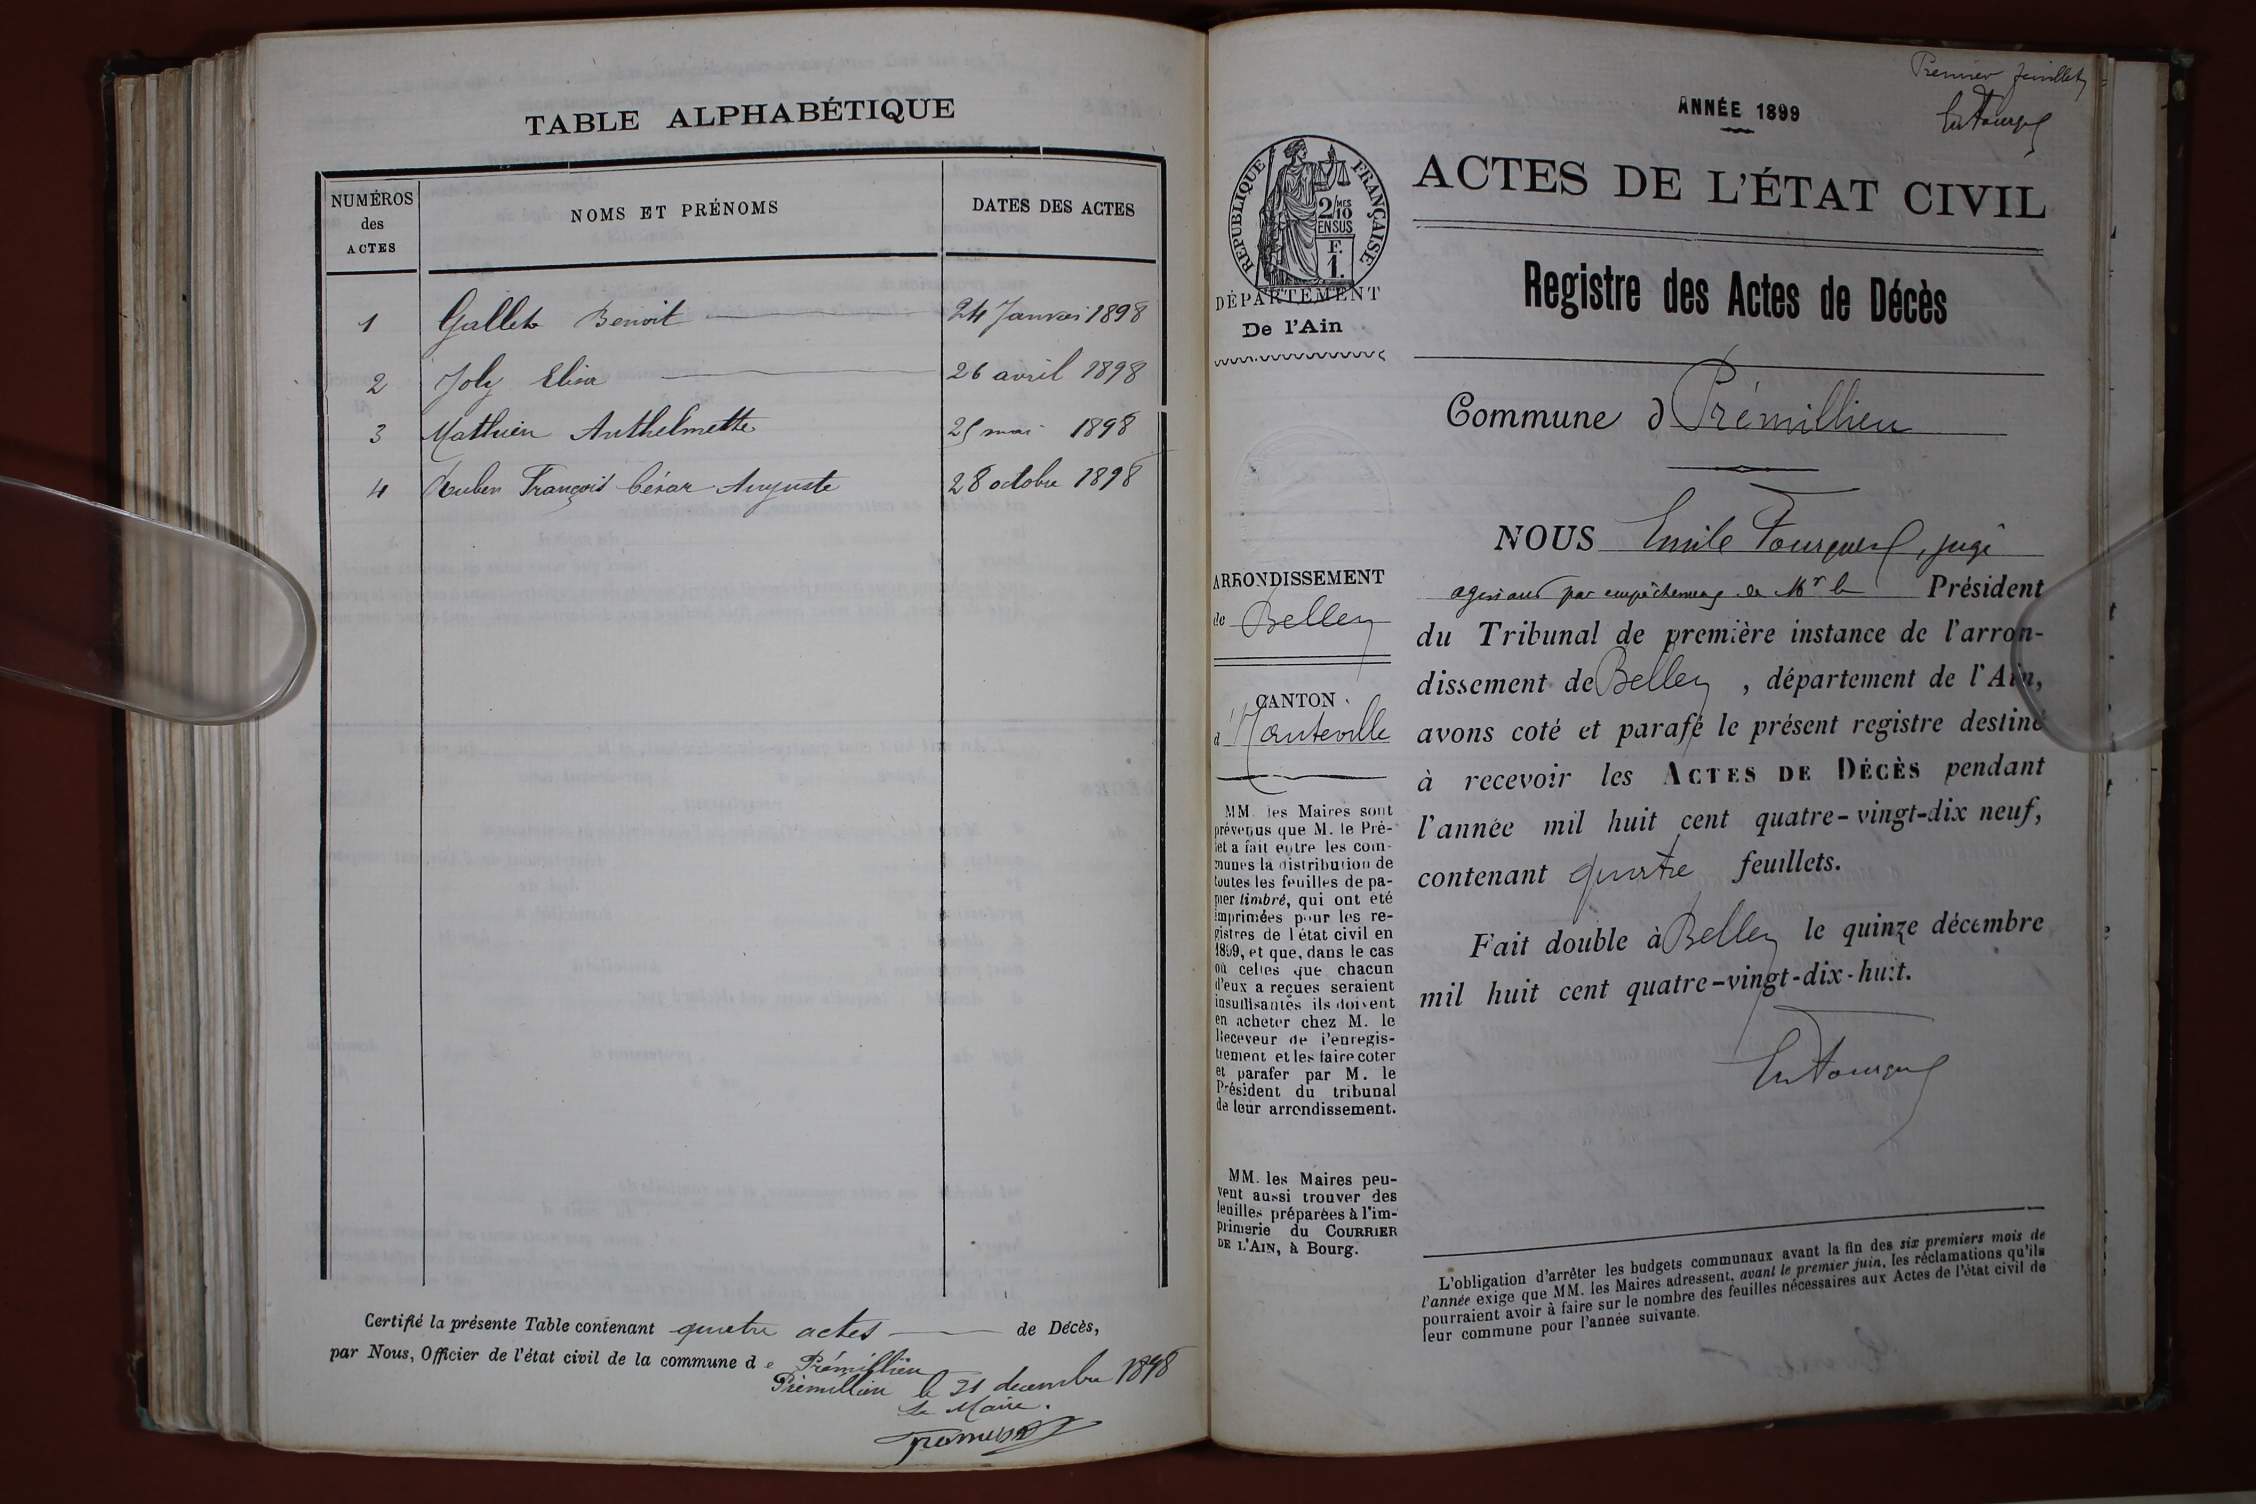 TABLE ALPHABÉTIQUE
NUMÉROS
des
ACTES
NOMS ET PRÉNOMS
DATES DES ACTES
1 Gallet Benoit 24 Janvier 1898
2 Joly Elisa 26 avril 1898
3 Mathieu Anthelmette 25 mai 1898
4 François César Auguste 28 octobre 1898
Certifié la présente Table contenant quatre actes de Décès,
par Nous, Officier de l'état civil de la commune de Prémillieu
Prémillieu le 31 decembre 1898
Le Maire.
Premier feuillet
ANNÉE 1899
ACTES DE L'ÉTAT CIVIL
RÉPUBLIQUE FRANÇAISE
2/10 MES
EN SUS
F.
1.
DÉPARTEMENT
De l'Ain
Registre des Actes de Décès
Commune d Prémillieu
ARRONDISSEMENT
de Belley
CANTON
d'Hauteville
MM. les Maires sont
prévenus que M. le Pré-
fet a fait entre les com-
munes la distribution de
toutes les feuilles de pa-
pier timbré, qui ont été
imprimées pour les re-
gistres de l'état civil en
1899, et que, dans le cas
où celles que chacun
d'eux a reçues seraient
insuffisantes ils doivent
en acheter chez M. le
Receveur de l'enregis-
trement et les faire coter
et parafer par M. le
Président du tribunal
de leur arrondissement.
MM. les Maires peu-
vent aussi trouver des
feuilles préparées à l'im-
primerie du COURRIER
DE L'AIN, à Bourg.
NOUS Emile, juge
agissant par empêchement de Mr le Président
du Tribunal de première instance de l'arron-
dissement de Belley, département de l'Ain,
avons coté et parafé le présent registre destiné
à recevoir les ACTES DE DÉCÈS pendant
l'année mil huit cent quatre-vingt-dix neuf,
contenant quatre feuillets.
Fait double à Belley le quinze décembre
mil huit cent quatre-vingt-dix-huit.
L'obligation d'arrêter les budgets communaux avant la fin des six premiers mois de
l'année exige que MM. les Maires adressent, avant le premier juin, les réclamations qu'ils
pourraient avoir à faire sur le nombre des feuilles nécessaires aux Actes de l'état civil de
leur commune pour l'année suivante.